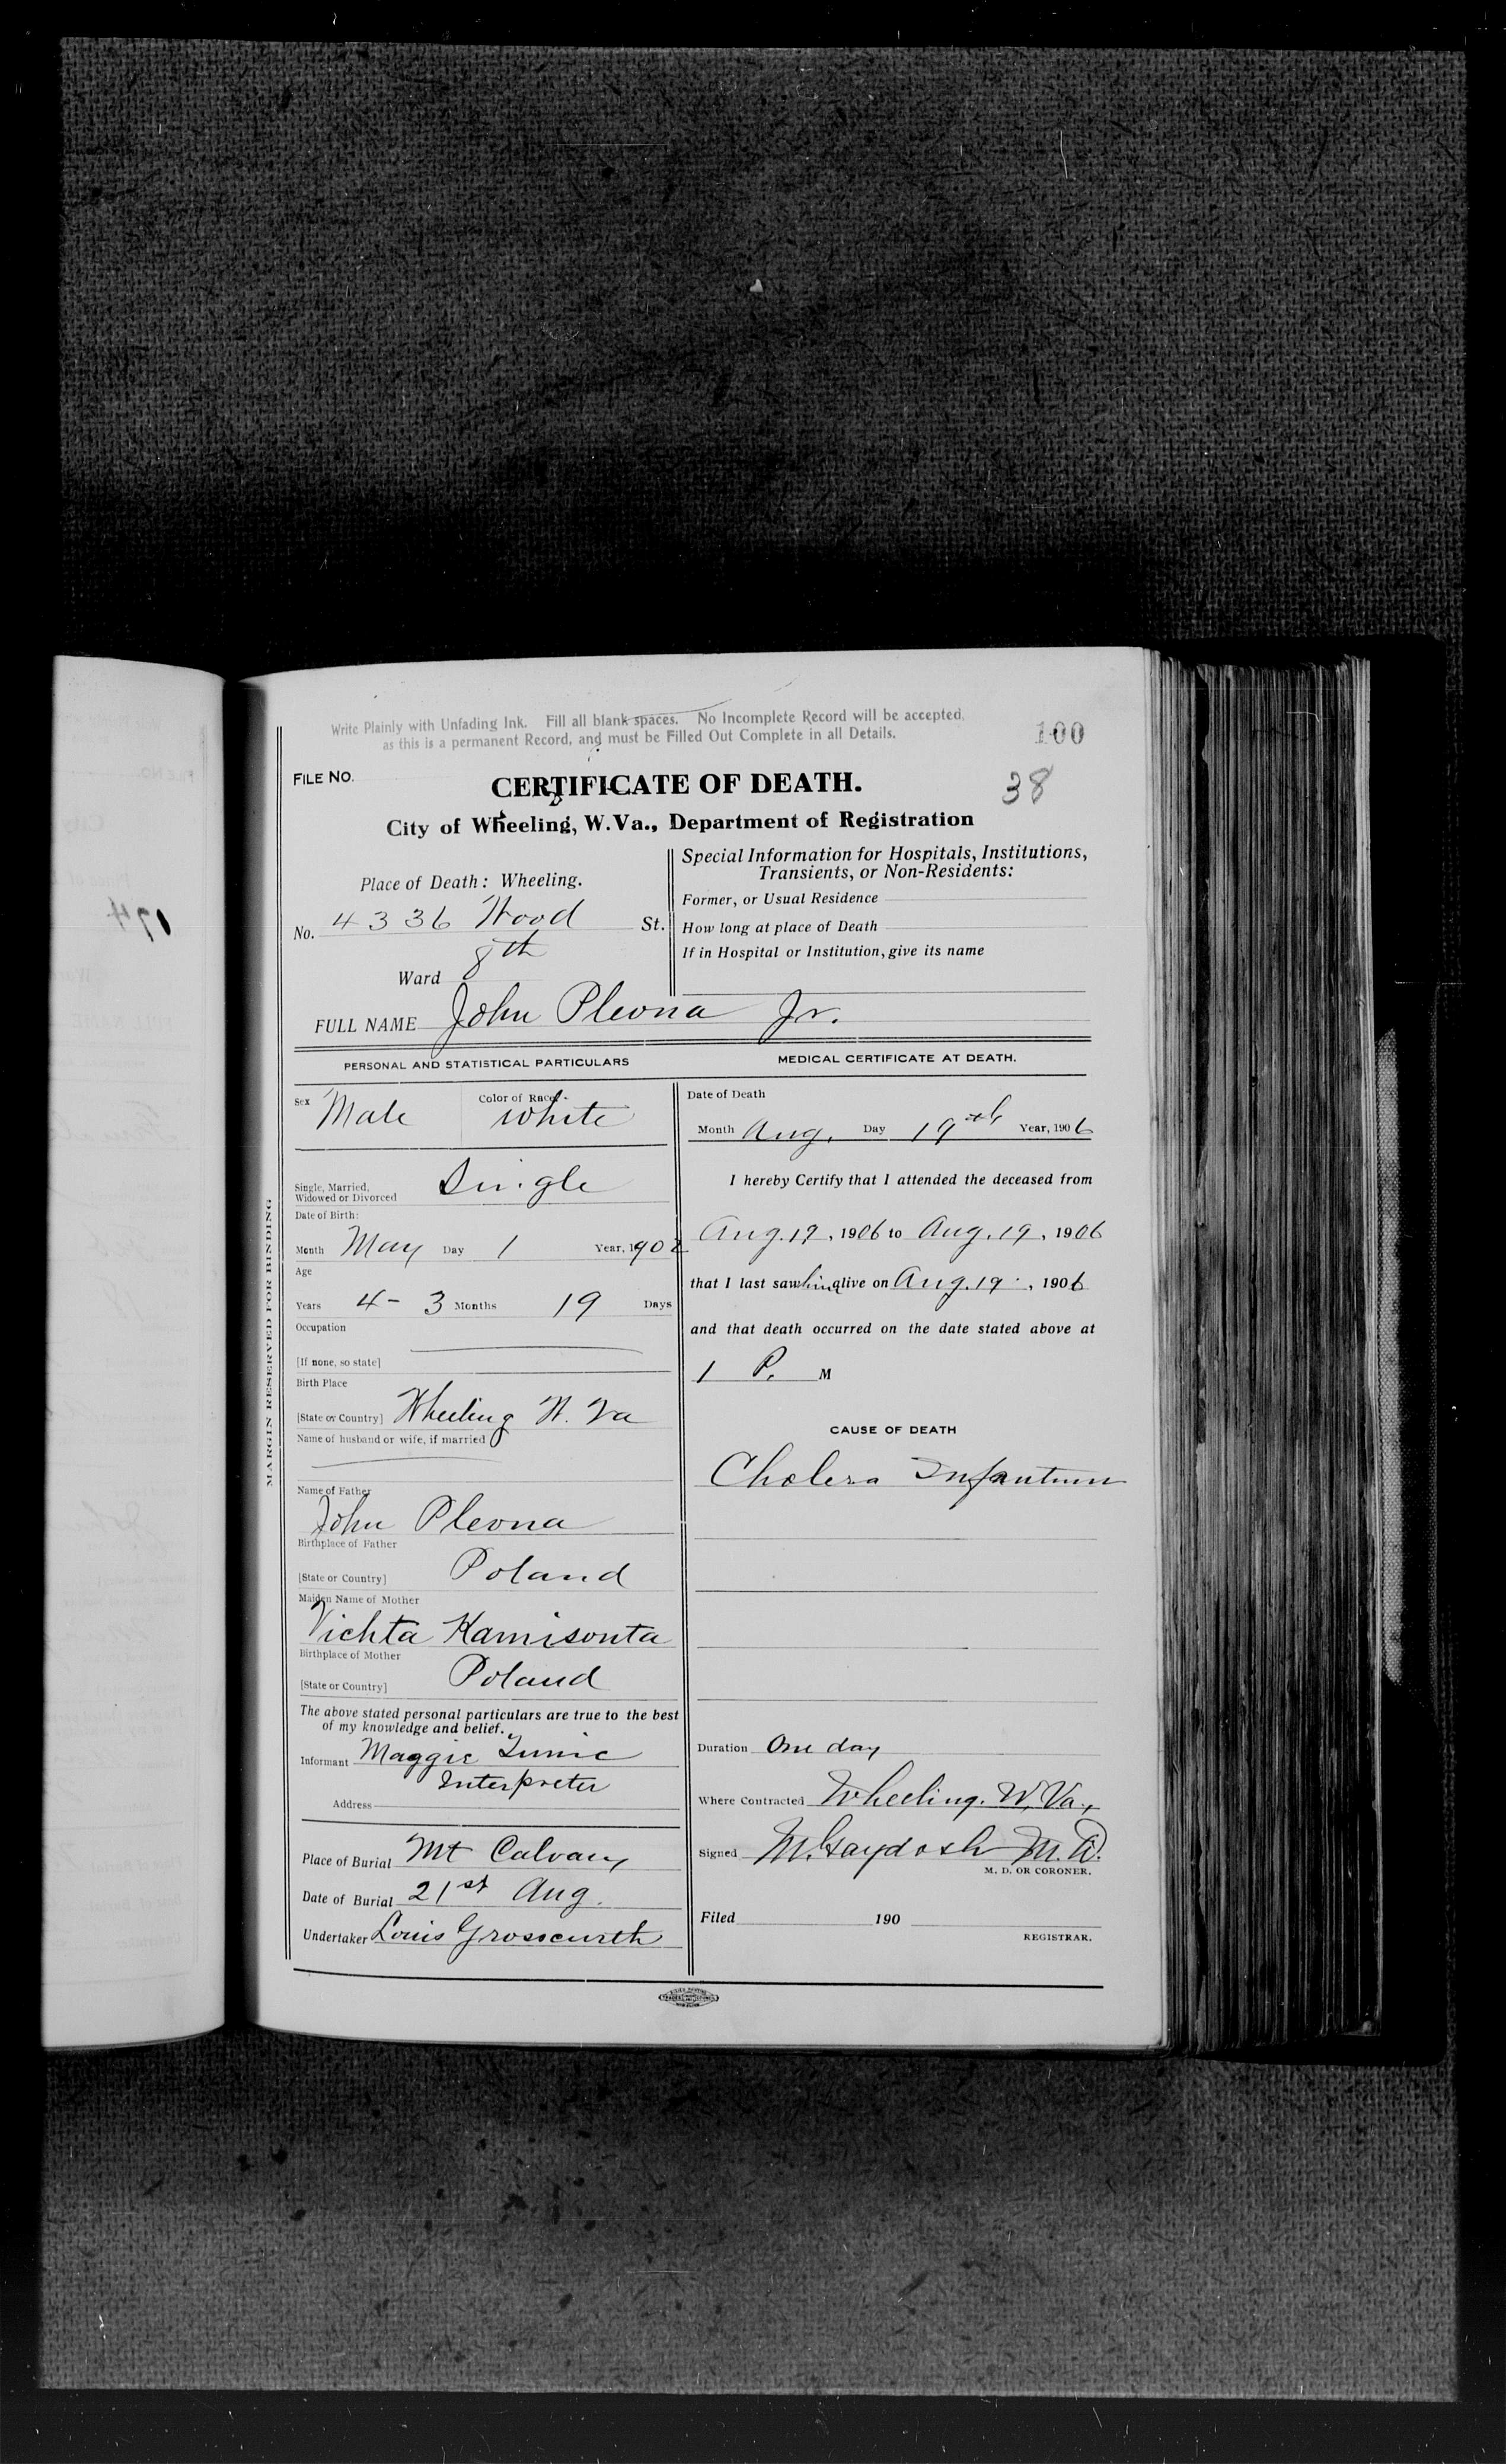 Write Plainly with Unfading Ink. Fill all blank spaces. No Incomplete Record will be accepted,
as this is a permanent Record, and must be Filled Out Complete in all Details.
100
FILE NO.
CERTIFICATE OF DEATH.
38
City of Wheeling, W.Va., Department of Registration
Place of Death: Wheeling.
No. 4336 Wood St.
8th
Ward
Special Information for Hospitals, Institutions,
Transients, or Non-Residents:
Former, or Usual Residence
How long at place of Death
If in Hospital or Institution, give its name
FULL NAME John Plevna Jr.
PERSONAL AND STATISTICAL PARTICULARS
Sex Male Color of Race white
Single, Married,
Widowed or Divorced Single
Date of Birth:
Month May Day 1 Year, 1902
Age
Years 4 - 3 Months 19 Days
Occupation
[If none, so state]
Birth Place
[State or Country] Wheeling W. Va
Name of husband or wife, if married
Name of Father
John Plevna
Birthplace of Father
[State or Country] Poland
Maiden Name of Mother
Vichta Kamisonta
Birthplace of Mother
[State or Country] Poland
The above stated personal particulars are true to the best
of my knowledge and belief.
Informant Maggie
Interpreter
Address
Place of Burial Mt Calvary
Date of Burial 21st Aug.
Undertaker Louis Grosscurth
MARGIN RESERVED FOR BINDING
MEDICAL CERTIFICATE AT DEATH.
Date of Death
Month Aug. Day 19th Year, 1906
I hereby Certify that I attended the deceased from
Aug. 19, 1906 to Aug. 19, 1906
that I last saw him alive on Aug. 19, 1906
and that death occurred on the date stated above at
1 P. M
CAUSE OF DEATH
Cholera Infantum
Duration One day
Where Contracted Wheeling. W. Va.,
Signed M. Gaydosh M.D.
M. D. OR CORONER.
Filed 190
REGISTRAR.
174